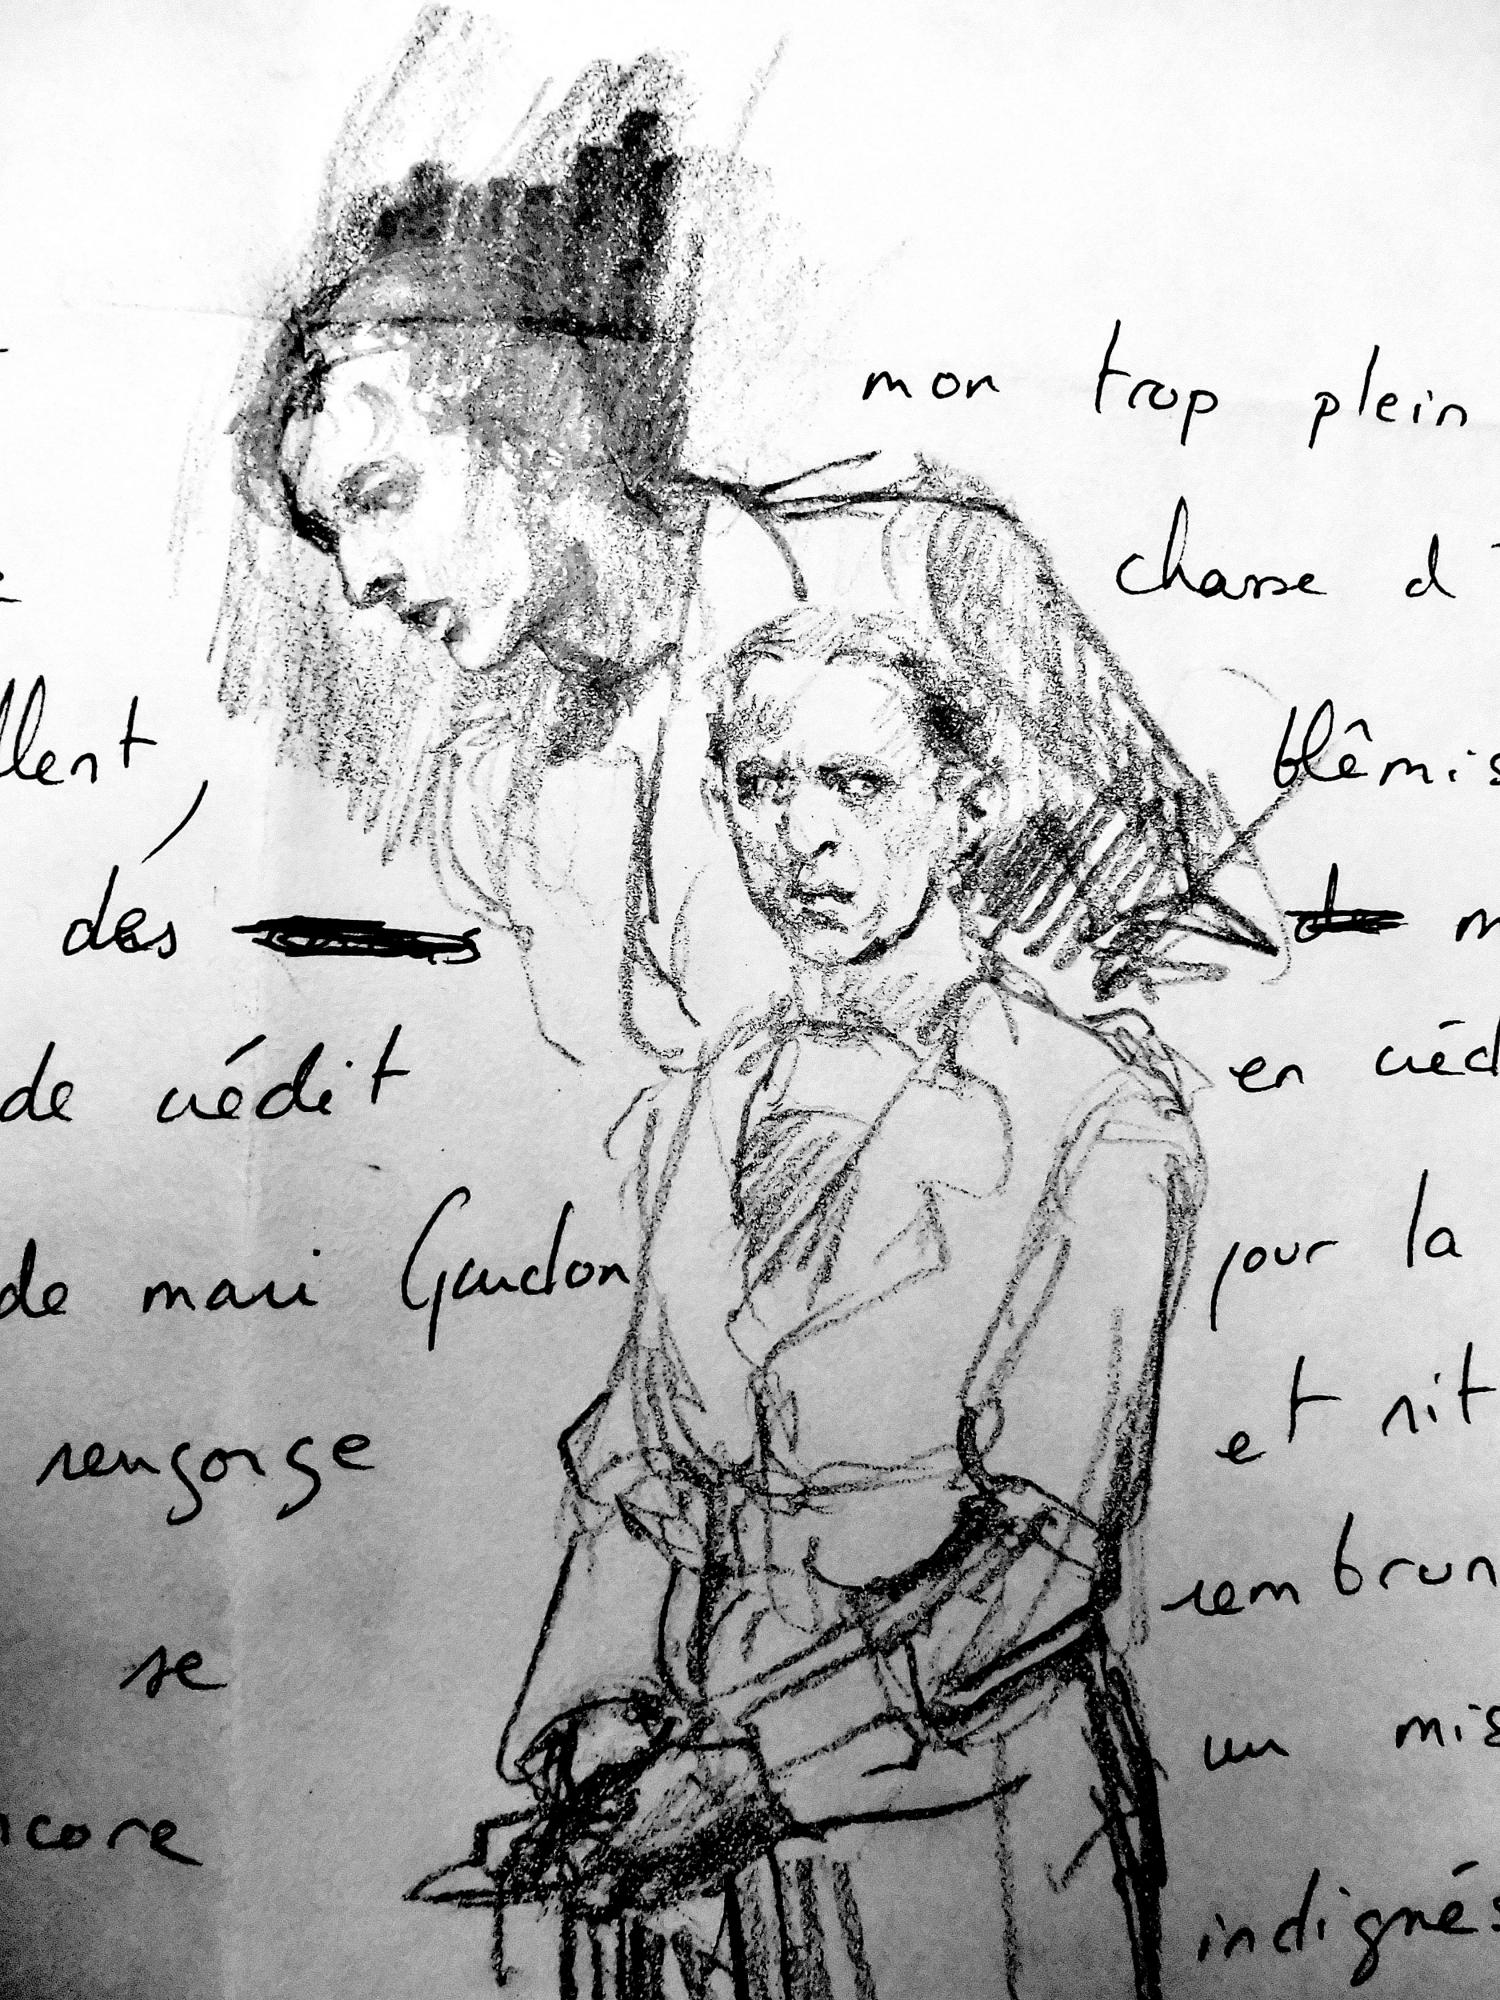 mon trop plein
chasse d'
llent,
blêmis
des m
de crédit
en créd
de mari Gaudon
pour la
rengorge
et rit
rembrun
se
un mis
ncore
indignés